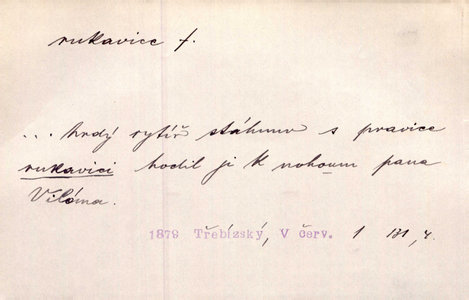 rukavice f.
... hrdý rytíř stáhnuv s pravice
rukavici hodil ji k nohoum pana
Viléma.
1879 Třebízský, V červ. 1 131, 4.